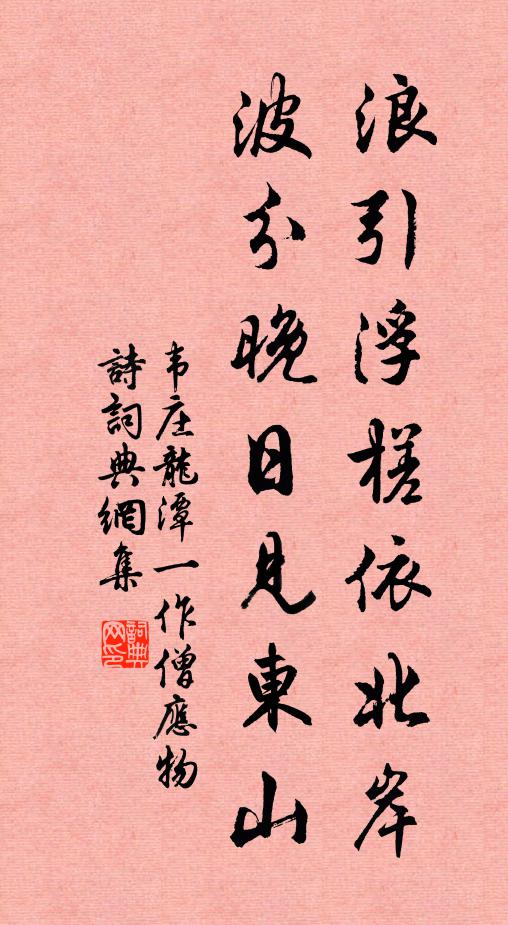 浪引浮槎依北岸
波分晚日見東山
韦庄龍潭一作僧應物
詩詞典網集
詞典網印